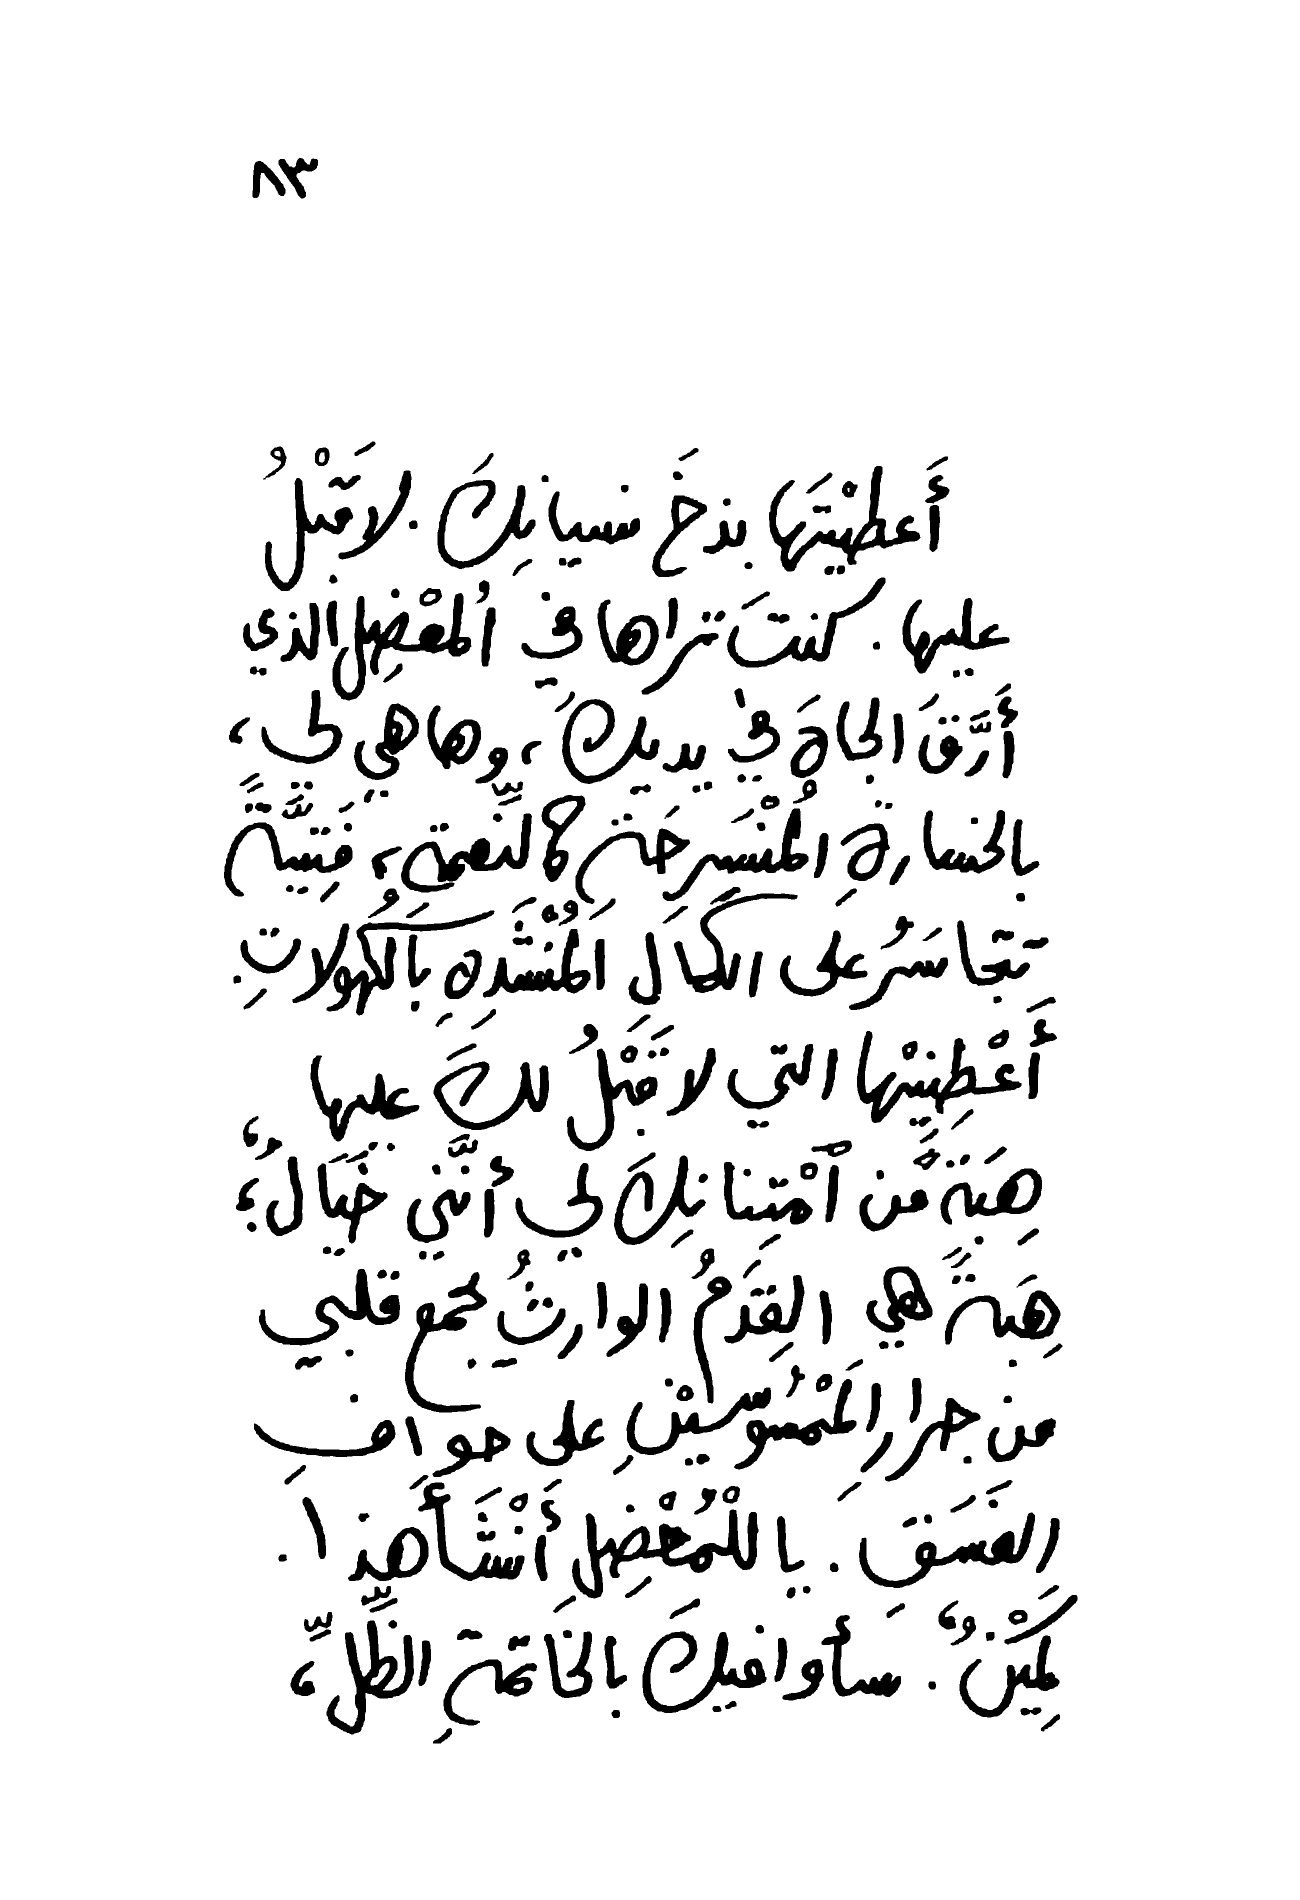 ٨٣
أَعطيْتَها بذخَ نسيانِكَ. لا قَبْلُ
عليها. كنتَ تراها في اُلمعْضِلِ الذي
أَرَّقَ الجاهَ في يديكَ، وها هي لي،
بالخسارةِ المُنْسَرِحَة كالنِّعمةِ، فَتِيَّةً
تتجاسَرُ على الكمالِ اَلمُنْشَدِهِ بالكُهولاتِ
أَعْطِنِيْها التي لا قَبْلُ لكَ عليها
هِبَةً من اَمْتِنانِكَ لي أنَّني خَيَالٌ؛
هِبَةً هي القِدَمُ الوارثُ بجمعِ قلبي
من جرارِ المَمْسُوسِّيْنِ على حوافِ
الغَسَقِ. يا للْمُعْضِلِ أَنْشَأَ هذا.
لِمَيْنٌ. سأوافيكَ بالخَاتمةِ الظِّلِّ،